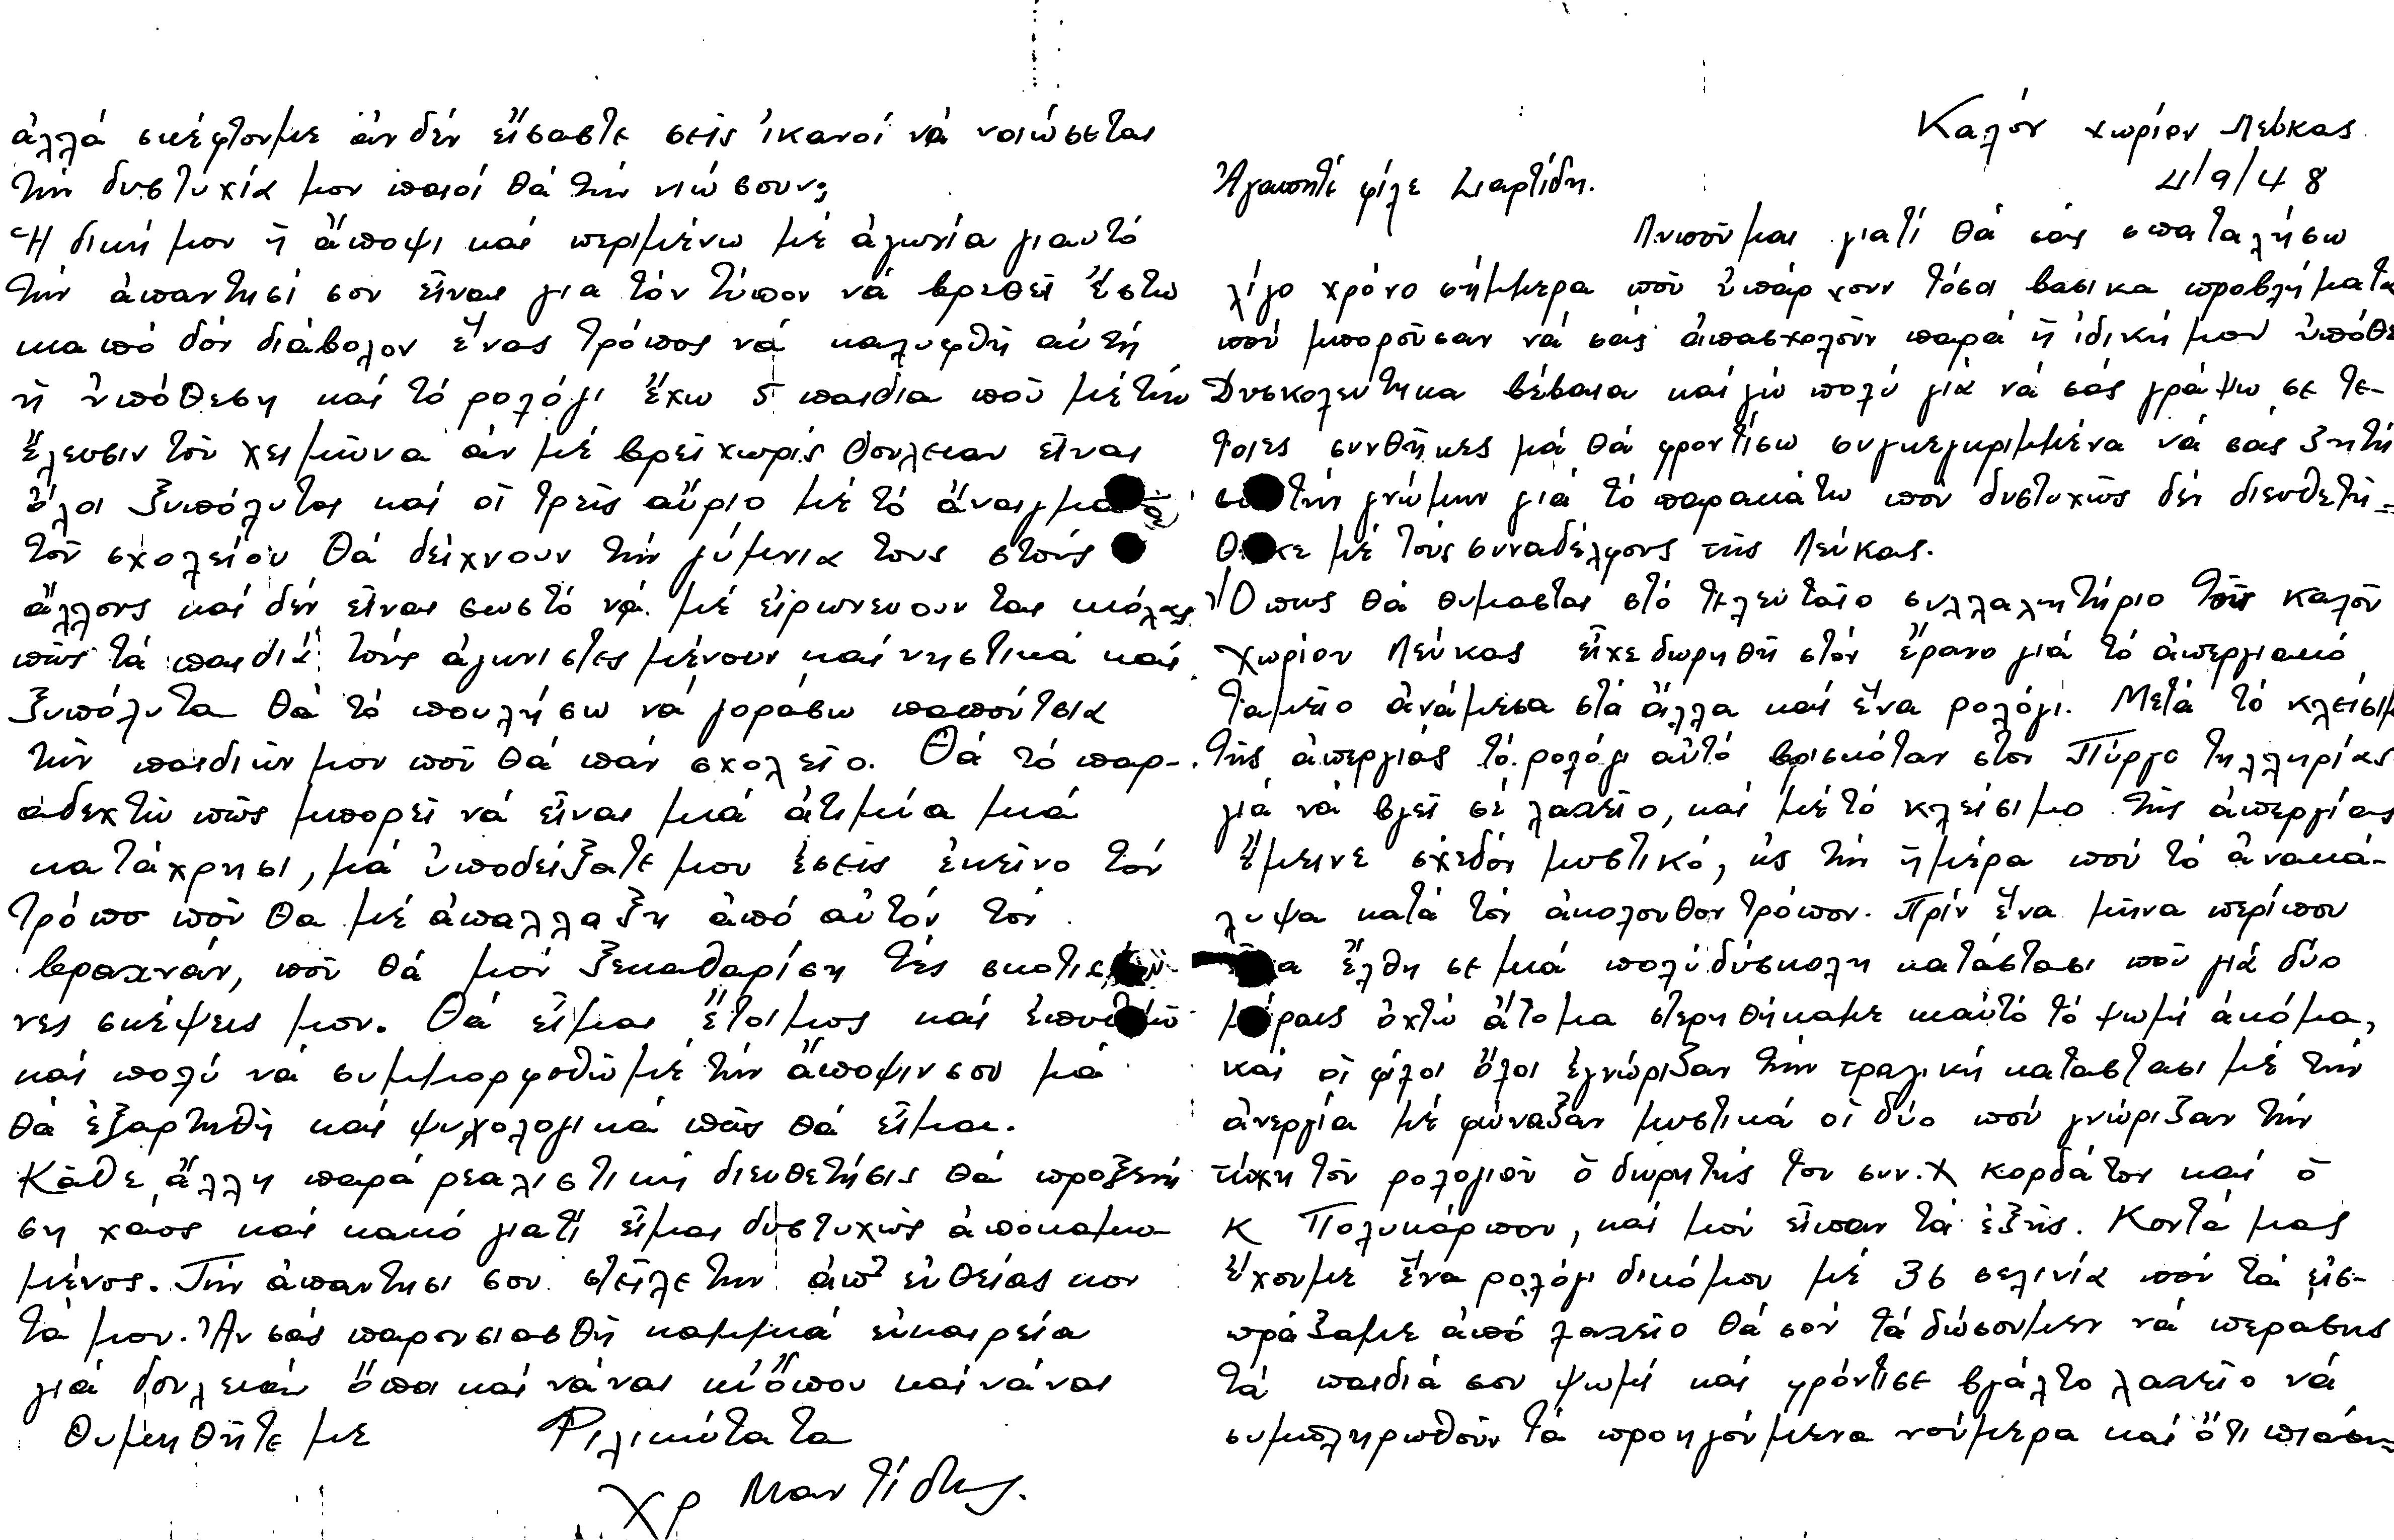 Καλόν χωρίον Λεύκας
4/9/48
Ἀγαπητέ φίλε Ζιαρτίδη.
Λυποῦμαι γιατί θά σάς σπαταλήσω
λίγο χρόνο σήμμερα ποῦ ὑπάρχουν τόσα βασικα προβλήματα
πού μποροῦσαν νά σάς ἀπασχολοῦν παρά ἡ ἰδική μου ὑπόθε
Δυσκολευτηκα βέβαια καί γώ πολύ γιά νά σάς γράψω σε τέ-
τοιες συνθῆκες μά θά φροντίσω συγκεγκριμμένα νά σάς ζητή
σω τήν γνώμην γιά τό παρακάτω ποῦ δυστυχῶς δέν διευθετή-
θηκε μέ τούς συναδέλφους τῆς Λεύκας.
Ὅπως θά θυμασται στό τελευταῖο συλλαλητήριο τοῦ Καλοῦ
χωρίου Λεύκας εἶχε δωρηθῆ στόν ἔρανο γιά τό ἀπεργιακό
ταμεῖο ἀνάμεσα στά ἄλλα καί ἕνα ρολόγι. Μετά τό κλείσιμ
τῆς ἀπεργίας τό ρολόγι αὐτό βρισκόταν στον Πύργο τηλληρίας
γιά νά βγεῖ σέ λαχεῖο, καί μέ τό κλείσιμο τῆς ἀπεργίας
ἔμεινε σχεδόν μυστικό, ὡς τήν ἡμέρα πού τό ἀνακά-
λυψα κατά τόν ἀκολουθον τρόπον. Πρίν ἕνα μῆνα περίπου
εἶχα ἔλθη σε μιά πολύ δύσκολη κατάστασι ποῦ γιά δύο
μέραις ὀχτώ ἄτομα στερηθήκαμε κιαὐτό τό ψωμί ἀκόμα,
καί οἱ φίλοι ὅλοι ἐγνώριζαν τήν τραγική καταστασι μέ τήν
ἀνεργία μέ φώναξαν μυστικά οἱ δύο πού γνώριζαν τήν
τύχη τοῦ ρολογιοῦ ὁ δωρητής του συν. Χ Κορδάτος καί ὁ
Κ Πολυκάρπου, καί μού εἶπαν τά ἑξῆς. Κοντά μας
ἔχουμε ἕνα ρολόγι δικόμου μέ 36 σελίνια πού τά εἰσ-
πράξαμε ἀπό λαχεῖο θά σού τά δώσουμεν νά περασης
τά παιδιά σου ψωμί καί φρόντισε βγάλτο λαχεῖο νά
συμπληρωθοῦν τά προηγούμενα νούμερα καί ὅτι πιάση
ἀλλά σκέφτουμε ἄν δέν εἴσαστε σεῖς ἱκανοί νά νοιώσεται
τήν δυστυχία μου ποιοί θά τήν νιώσουν;
Ἡ δική μου ἡ ἄποψι καί περιμένω μέ ἀγωνία γιαυτό
τήν ἀπαντησί σου εἶναι για τόν τύπον νά βρεθεῖ ἔστω
καπό δόν διάβολον ἕνας τρόπος νά καλυφθῆ αὐτή
ἡ ὑπόθεση καί τό ρολόγι ἔχω 5 παιδια ποῦ μέ τήν
ἔλευσιν τοῦ χειμῶνα ἄν μέ βρεῖ χωρίς δουλειαν εἶναι
ὅλοι ξυπόλυτοι καί οἱ τρεῖς αὔριο μέ τό ἄνοιγμα
τοῦ σχολείου θά δείχνουν τήν γύμνια τους στούς
ἄλλους καί δέν εἶναι σωστό νά μέ εἰρωνευουνται κιόλας
πῶς τά παιδιά τούς ἀγωνιστες μένουν καί νηστικά καί
ξυπόλυτα θά τό πουλήσω νά γοράσω παπούτσια
τῶν παιδιῶν μου ποῦ θά πάν σχολεῖο. Θά τό παρ-
αδεχτῶ πῶς μπορεῖ νά εἶναι μιά ἀτιμία μιά
κατάχρησι, μά ὑποδείξατε μου ἐσεῖς ἐκεῖνο τόν
τρόπο ποῦ θα μέ ἀπαλλαξη ἀπό αὐτόν τόν
βραχνάν, ποῦ θά μού ξεκαθαρίση τές σκοτισ
νες σκέψεις μου. Θά εἶμαι ἕτοιμος καί
καί πολύ νά συμμορφοθῶ μέ τήν ἄποψιν σου μά
θά ἐξαρτηθῆ καί ψυχολογικά πῶς θά εἶμαι.
Κάθε ἄλλη παρά ρεαλιστική διευθετήσις θά προξενή
ση χάος καί κακό γιατί εἶμαι δυστυχῶς ἀποκαμω-
μένος. Τήν ἀπαντησι σου στεῖλε την ἀπ' εὐθείας κον
τά μου. Ἄν σάς παρουσιασθῆ καμμιά εὐκαιρεία
γιά δουλειάν ὅποι καί νάναι κι ὅπου καί νάναι
θυμηθῆτε με Φιλικώτατα
Χρ Μαντίδης.